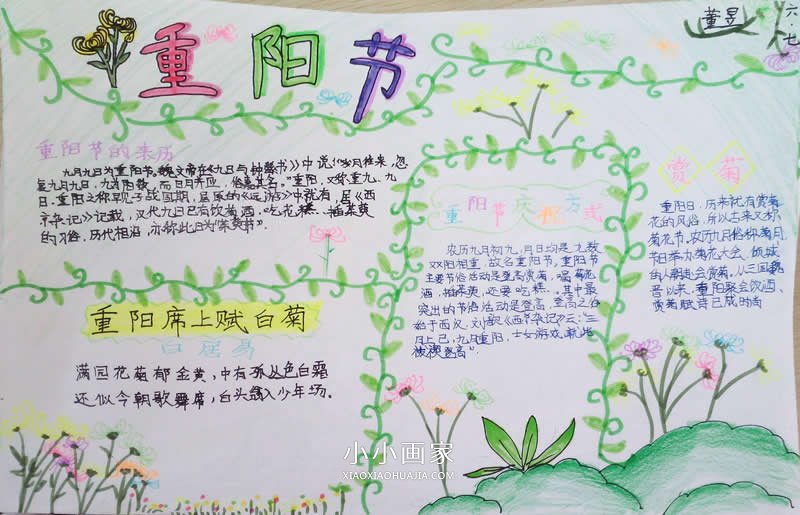 重阳节
董昱
六·七
重阳节的来历
九月九日为重阳节。魏文帝在《九日与钟繇书》中说:“岁月往来,忽
复九月九日,九为阳数,而日月并应,俗嘉其名。”重阳,又称重九、九
日。重阳之称早见于战国期,屈原的《远游》中就有,居《西
京杂记》记载,汉代九日已有饮菊酒,吃花糕、插茱萸
的习俗,历代相沿,亦称此日为“茱萸节”
重阳席上赋白菊
白居易
满园花菊郁金黄,中有孤丛色白霜
还似今朝歌舞席,白头翁入少年场。
重阳节庆祝方式
农历九月初九,月日均是九数
双阳相重,故名重阳节,重阳节
主要节俗活动是登高赏菊,喝菊花
酒,插茱萸,还要吃糕。其中最
突出的节俗活动是登高,登高之俗
始于西汉,刘歆《西京杂记》云:“三
月上巳,九月重阳,士女游戏,就此
被禊登高”
赏菊
重阳日,历来就有赏菊
花的风俗,所以古来又称
菊花节,农历九月俗称菊月
节日举办菊花大会,倾城
的人潮赴会赏菊。从三国魏
晋以来,重阳聚会饮酒、
赏菊赋诗已成时尚
小小画家
XIAOXIAOHUAJIA.COM